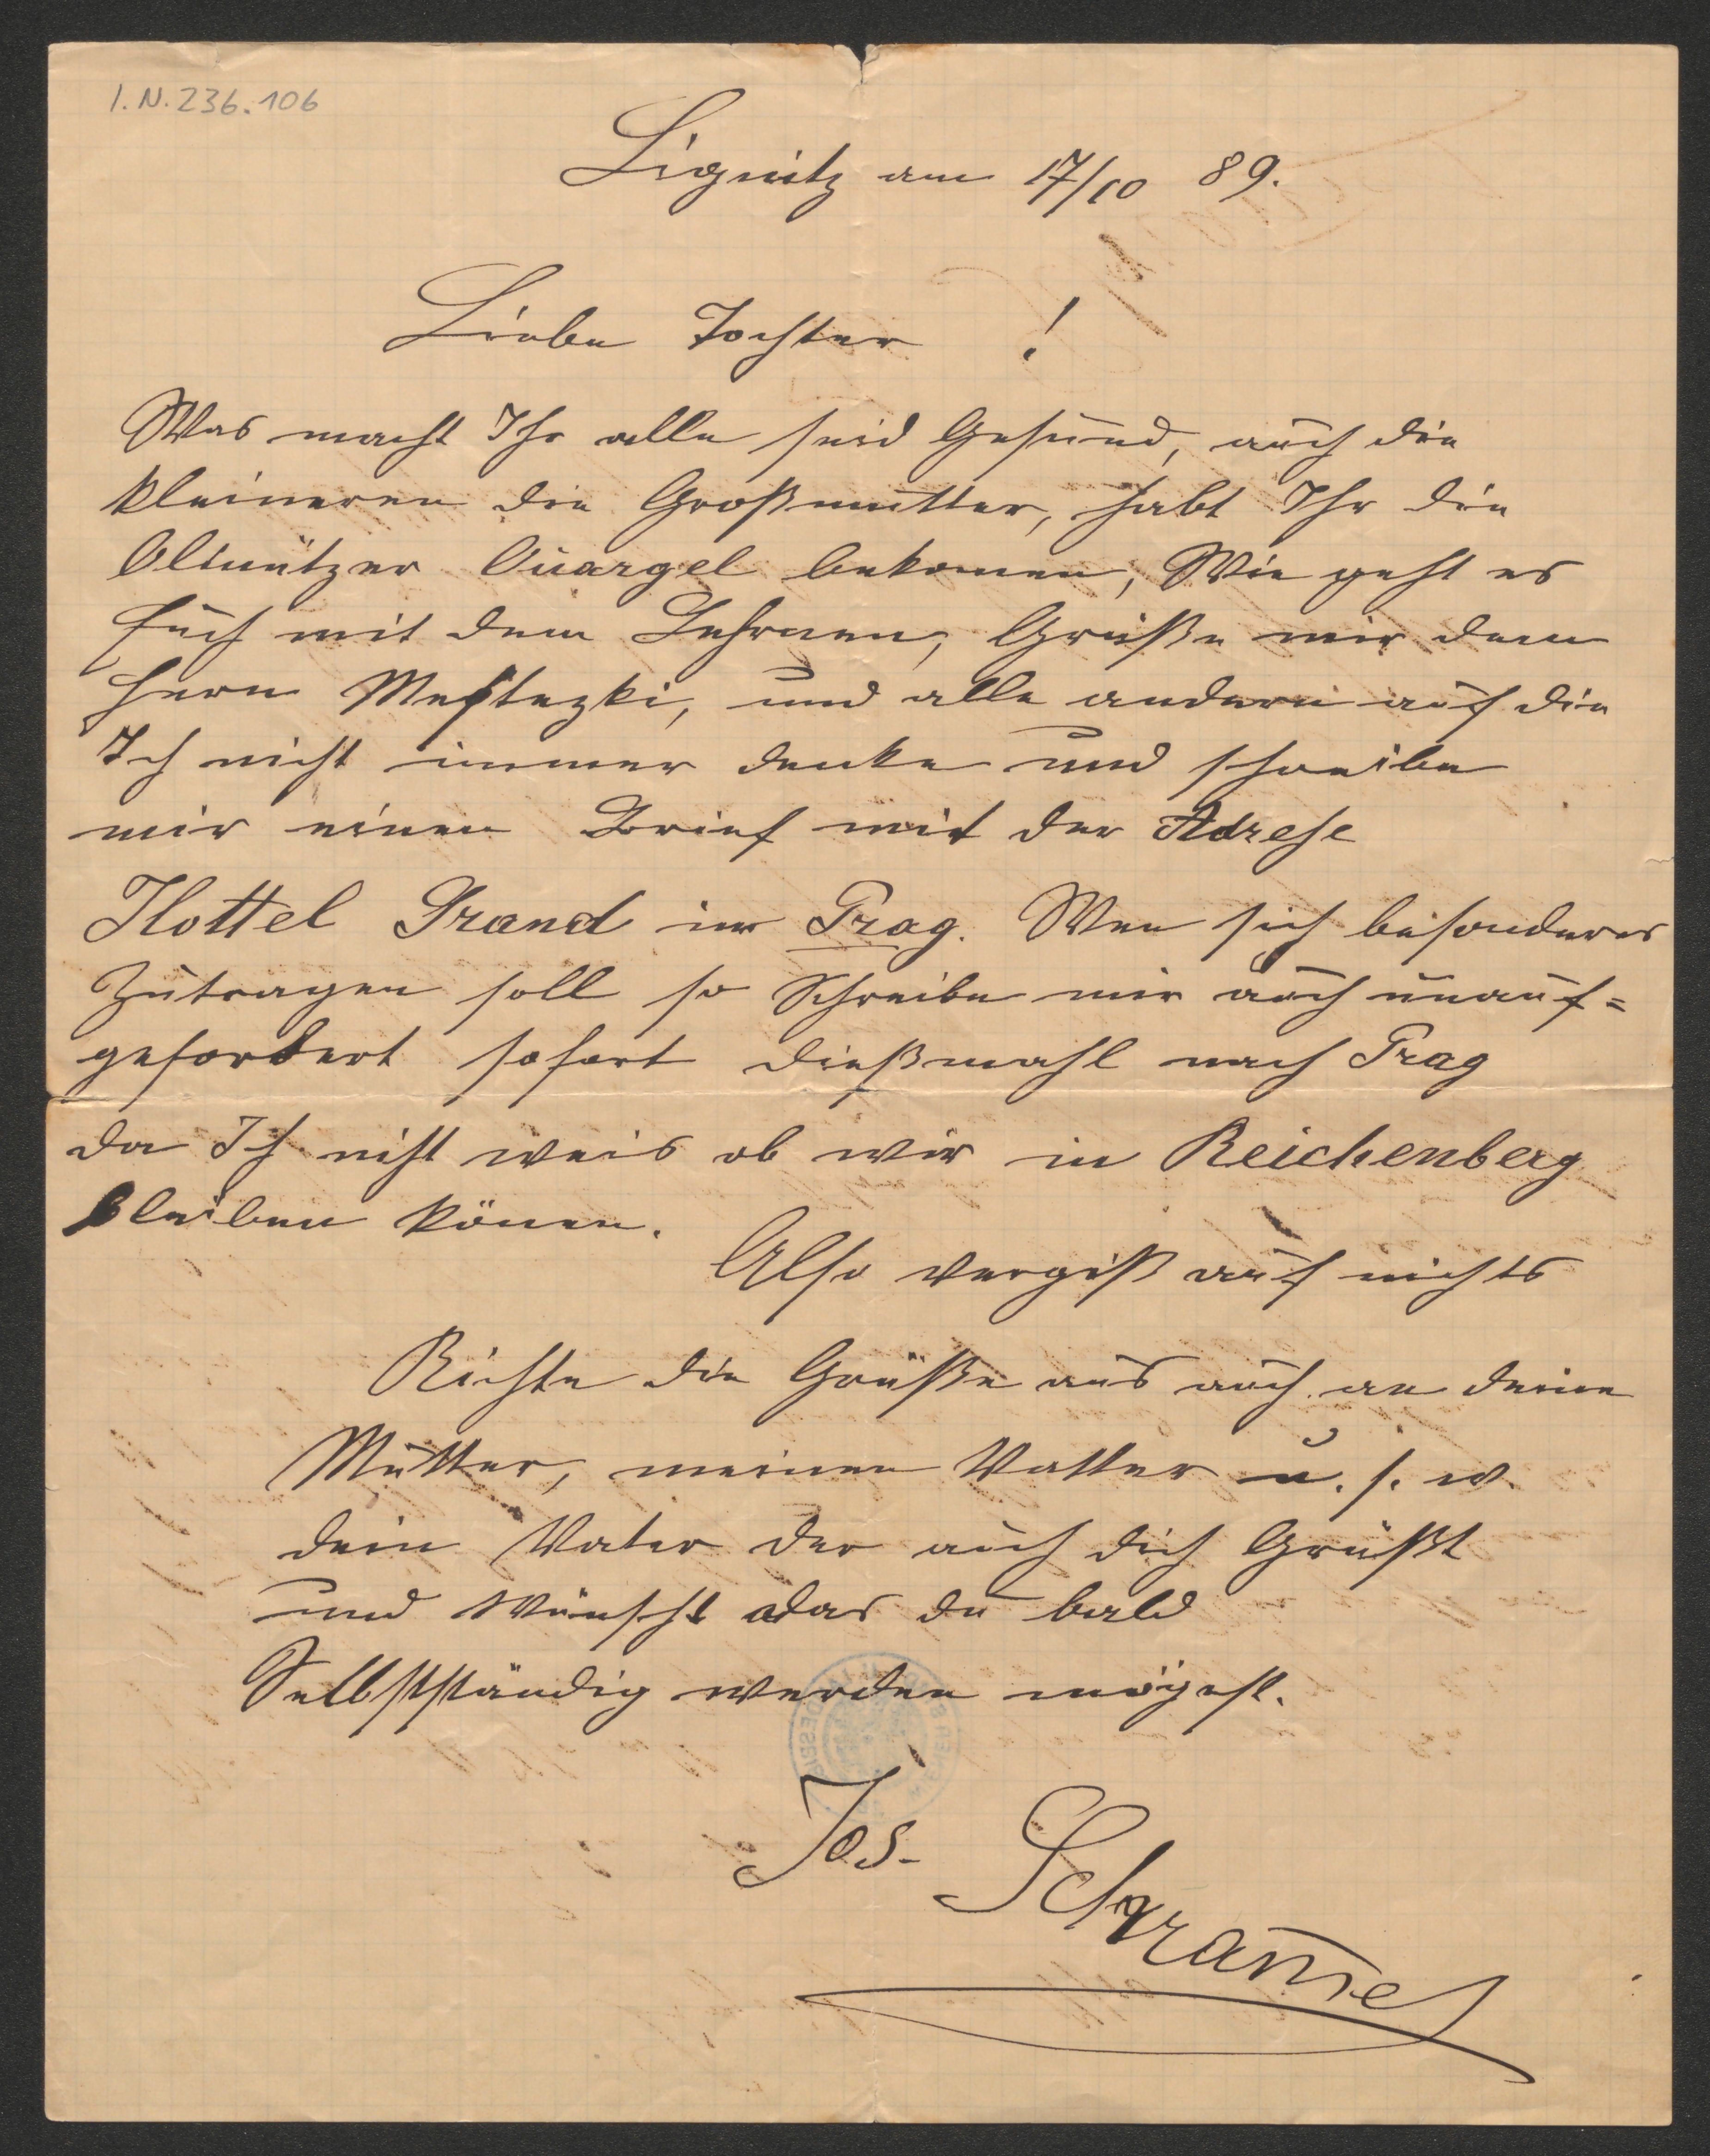 I.N.236.106
Lignitz am 17/10 89.
Liebe Tochter !
Was macht Ihr alle seid Gesund, auch die
kleineren die Großmutter, habt Ihr die
Olmützer Quargel bekomen, Wie geht es
Euch mit dem Lehrnen, Grüße mir dem
Hern Mestezki, und alle andern auf die
Ich nicht immer denke und schreibe
mir einen Brief mit der Adrese
Hottel Grand in Prag. Wen sich besonderes
Zutragen soll so Schreibe mir auch unauf=
gefordert sofort dießmahl nach Prag
da Ich nicht weis ob wir in Reichenberg
Bleiben könen.
Also vergiß auf nichts
Richte die Grüße aus auch an deine
Mutter, meinen Vatter u. s. w.
dein Vater der auch dich Grüßt
und Wünscht das du bald
Selbstständig werden mögest.
Jos. Schramel